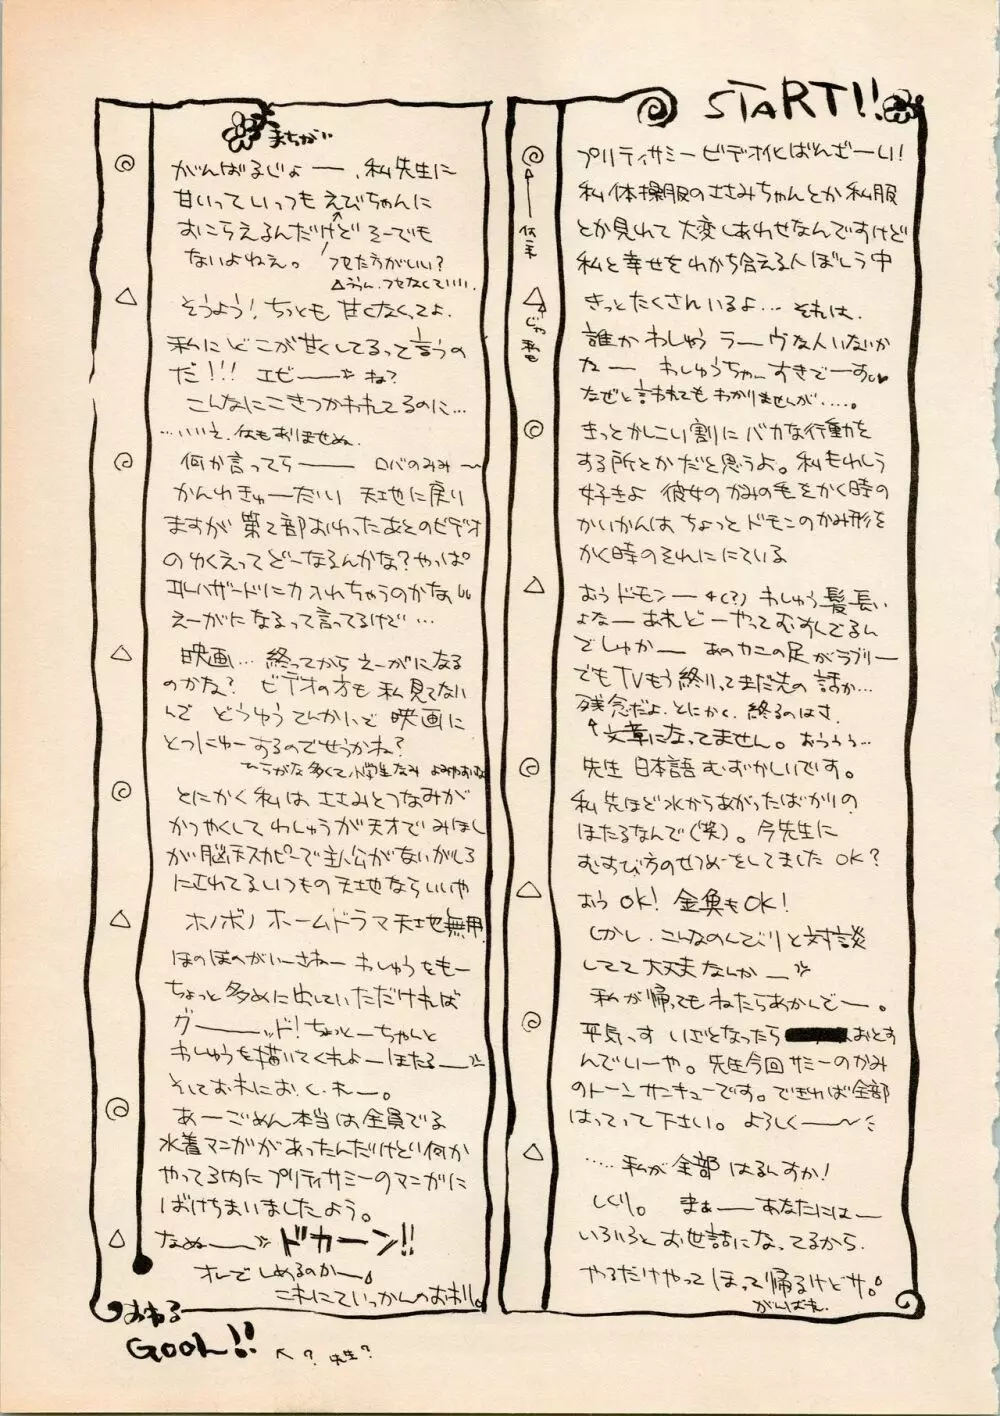 START!!
プリティサミービデオ化ばんざーい!
私体操服のささみちゃんとか私服
とか見れて大変しあわせなんですけど
私と幸せをわかち合える人ぼしう中
きっとたくさんいるよ… それは、
誰かわしゅうラーヴな人いないか
なー わしゅうちゃーすきでーす♥
なぜと言われてもわかりませんが……。
きっとかしこい割にバカな行動を
する所とかだと思うよ。私もわしう
好きよ 彼女のかみの毛をかく時の
かいかんは ちょっとドモンのかみ形を
かく時のそれににている
おうドモンー (?) わしゅう髪長い
よなー あれどーやってむすんでるん
でしゅかー あのカニの足がラブリー
でもTVもう終りってまだ先の話か…
残念だよ、とにかく、終るのはさ、
↑文章になってません。おううぅ…
先生 日本語むずかしいです。
私先ほど水からあがったばかりの
ほたるなんで(笑)。今先生に
むすび方のせつめーをしてました OK?
おう OK! 金魚もOK!
しかし、こんなのんびりと対談
してて大丈夫なんかー
私が帰ってもねたらあかんでー。
平気っす いざとなったら おとす
んでいーや。先生今回サミーのかみ
のトーンサンキューです。できれば全部
はってって下さい。よろしくー〜
……私が全部はるんすか!
しくり。 まぁーーあなたにはー
いろいろとお世話になってるから、
やるだけやってほって帰るけどサ。
がんばれ
じゃ私も
まちがい
がんばるじょー、私先生に
甘いっていっつもえびちゃんに
おこらえるんだけど そーでも
ないよねぇ。 ふせた方がいい?
△ううん、ふせなくていい。
そうよう!ちっとも甘くなくってよ、
私にどこが甘くしてるって言うの
だ!!! エビーー ね?
こんなにこきつかわれてるのに…
…いいえ、何もありませぬ
何か言ってらーー ロバのみみ〜
かんわきゅーだい 天地に戻り
ますが第2部おわったあとのビデオ
のゆくえってどーなるんかな?やっぱ
エルハザードに力入れちゃうのかな
えーがになるって言ってるけど…
映画… 終ってからえーがになる
のかな? ビデオの方も私見てない
んで どうゆうてんかいで映画に
とつにゅーするのでせうかね?
ひらがな多くて小学生なみ よみやすいね
とにかく私は ささみとつなみが
かつやくして わしゅうが天才で みほし
が脳天スカピーで主人公がないがしろ
にされてるいつもの天地ならいいや
ホノボノホームドラマ天地無用
ほのぼのがいーさねー わしゅうをもー
ちょっと多めに出していただければ
グーーッド!ちぃとーちゃんと
わしゅうを描いてくれよーほたるー
そしてお木にお・く・れー。
あーごめん本当は全員でる
水着マンガがあったんだけどい何か
やってる内にプリティサミーのマンガに
ばけちまいましたよう。
なぬーー ドカーン!!
オレでしめるのかー。
これにていっかんのおわり。
おわる
GOOL!! ↖? 先生?